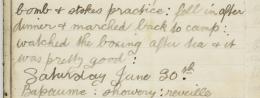 bomb & stokes practice: fell in after
dinner & marched back to camp:
watched the boxing after tea & it
was pretty good:
Saturday June 30th
Bapaume: showery: reveille